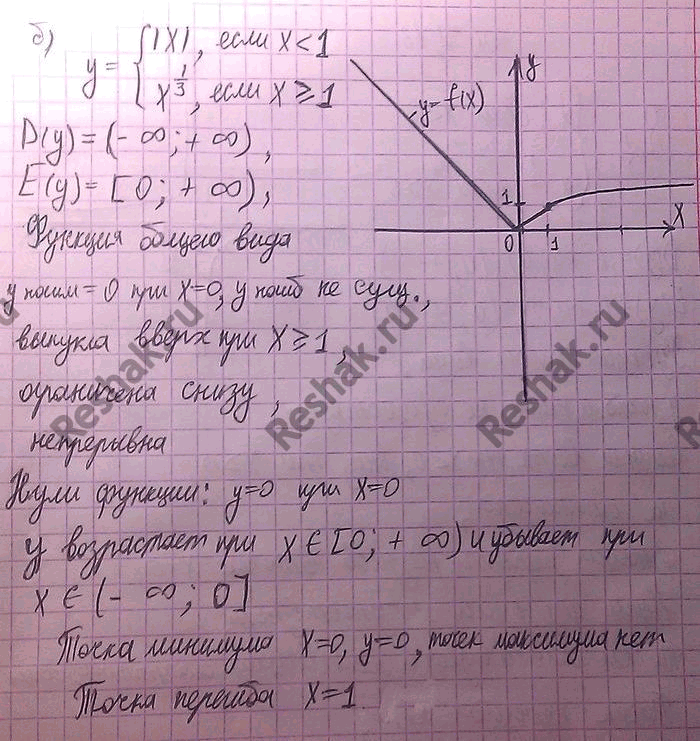 б)
y = { |x|, если x < 1
x^{1/3}, если x ⩾ 1
y
y=f(x)
1
x
0
1
D(y) = (- ∞; + ∞),
E(y) = [0; + ∞),
Функция общего вида
y наим = 0 при x=0, y наиб не сущ.,
выпукла вверх при x ⩾ 1,
ограничена снизу,
непрерывна
Нули функции: y=0 при x=0
y возрастает при x ∈ [0; + ∞) и убывает при
x ∈ (- ∞; 0]
Точка минимума x=0, y=0, точек максимума нет
Точка перегиба x=1
Reshak.ru
Reshak.ru
Reshak.ru